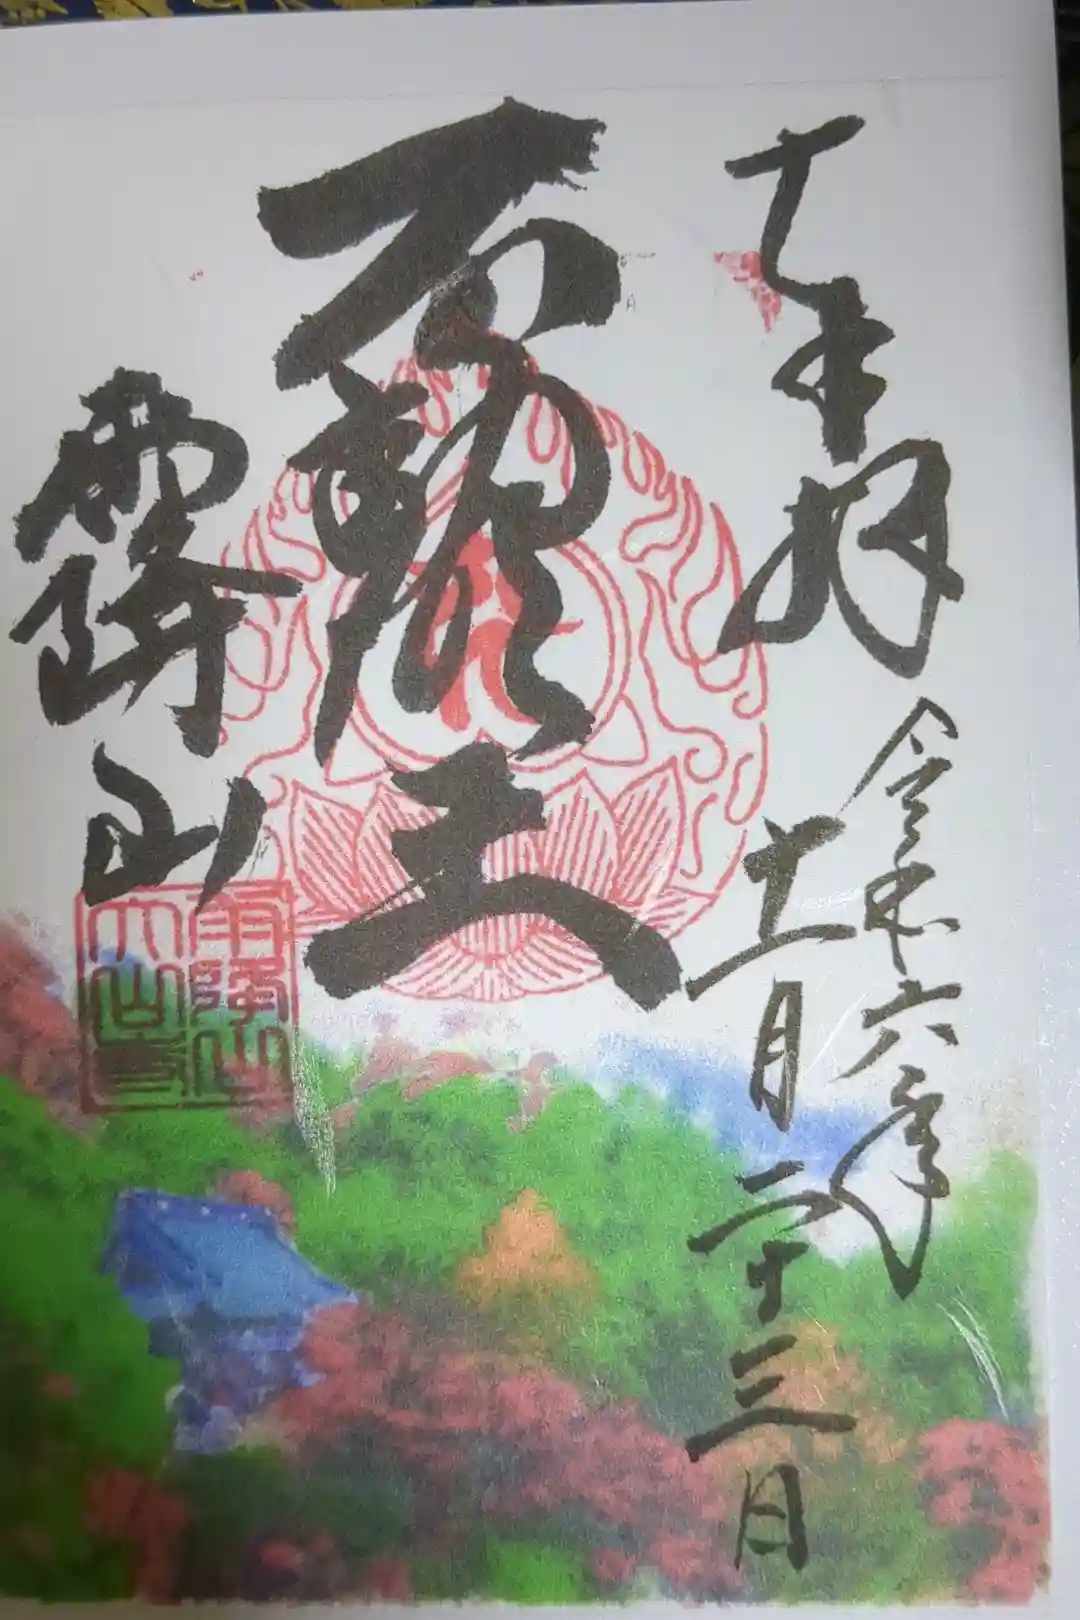 奉拝
令和六年
十一月二十三日
不動明王
雨降山
雨降山
大山寺